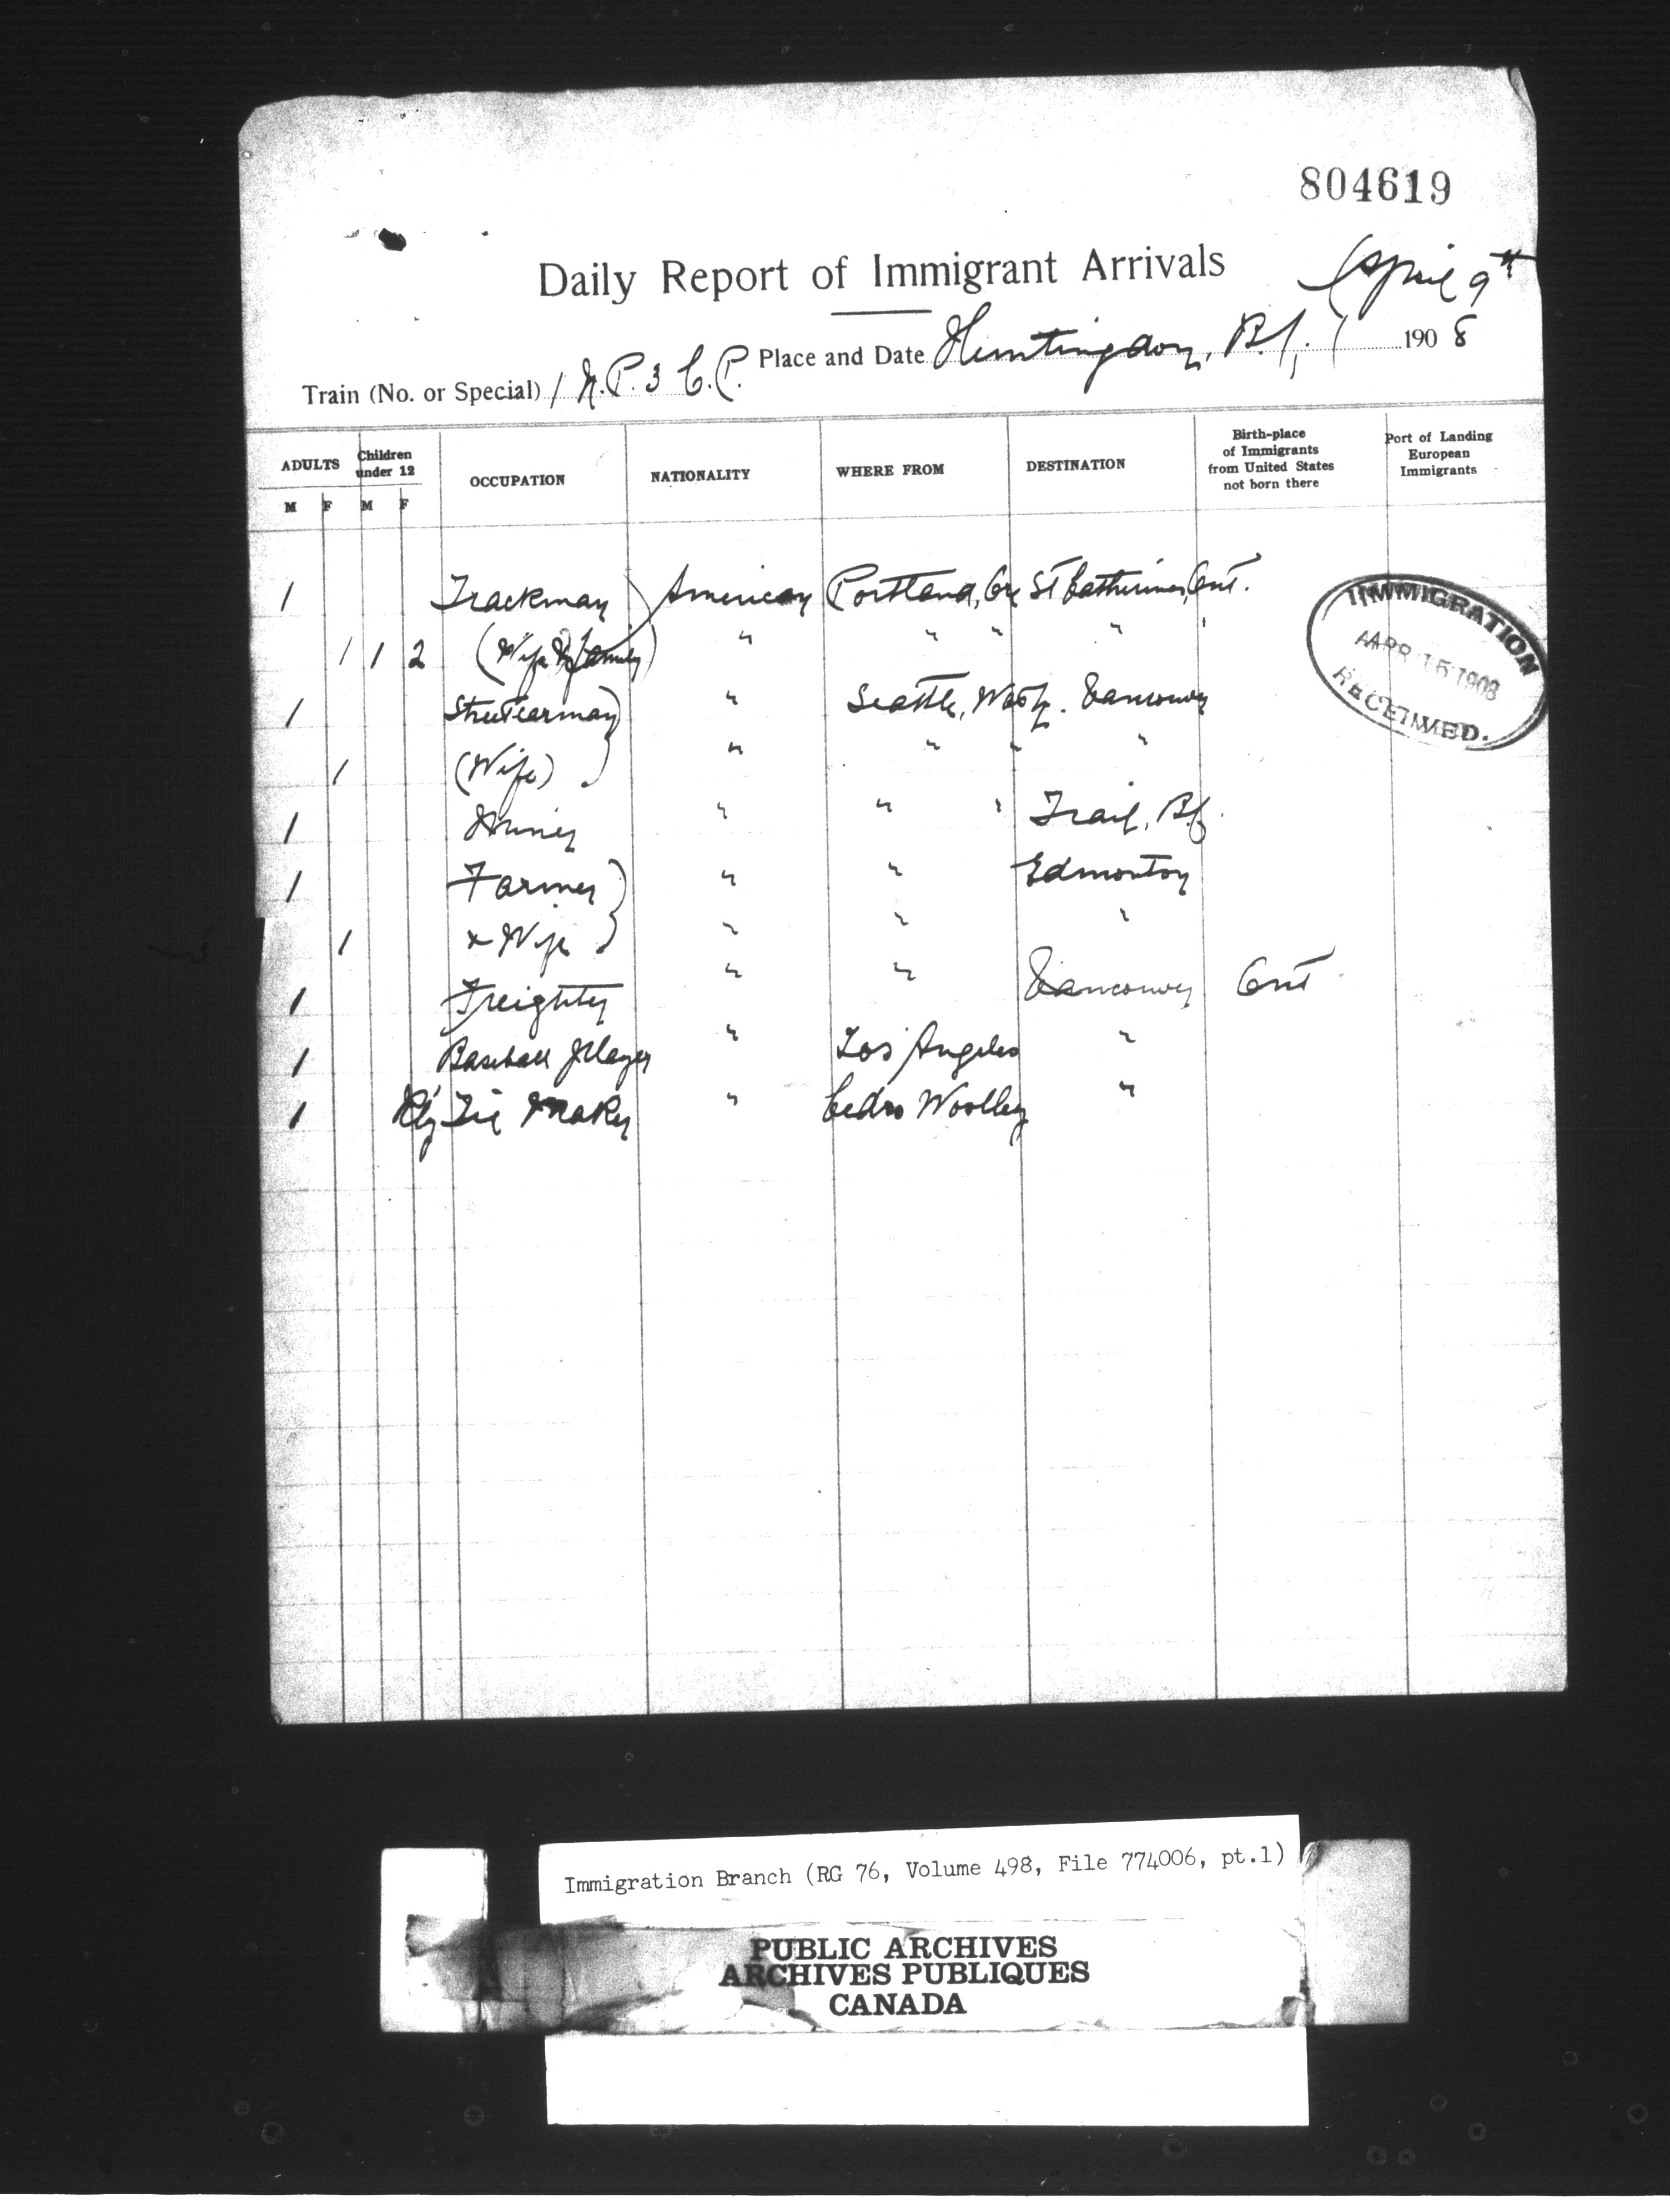 804619
Daily Report of Immigrant Arrivals
April 9th
Place and Date Huntingdon, B.C. 1908
Train (No. or Special) 1 N.P. 3 C.P.
ADULTS Children under 12 OCCUPATION NATIONALITY WHERE FROM DESTINATION Birth-place of Immigrants from United States not born there Port of Landing European Immigrants
M F M F
1 Trackman American Portland, Ore St Catherines, Ont.
1 1 2 (Wife & family) " " " " "
1 Streetcarman " Seattle, Wash. Vancouver
1 (Wife) " " " "
1 Miner " " " Trail, B.C.
1 Farmer " " Edmonton
1 x Wife " " "
1 Freighter " " Vancouver Ont
1 Baseball Player " Los Angeles "
1 Rly Tie Maker " Cedro Woolley "
IMMIGRATION
APR 15 1908
RECEIVED.
Immigration Branch (RG 76, Volume 498, File 774006, pt.1)
PUBLIC ARCHIVES
ARCHIVES PUBLIQUES
CANADA